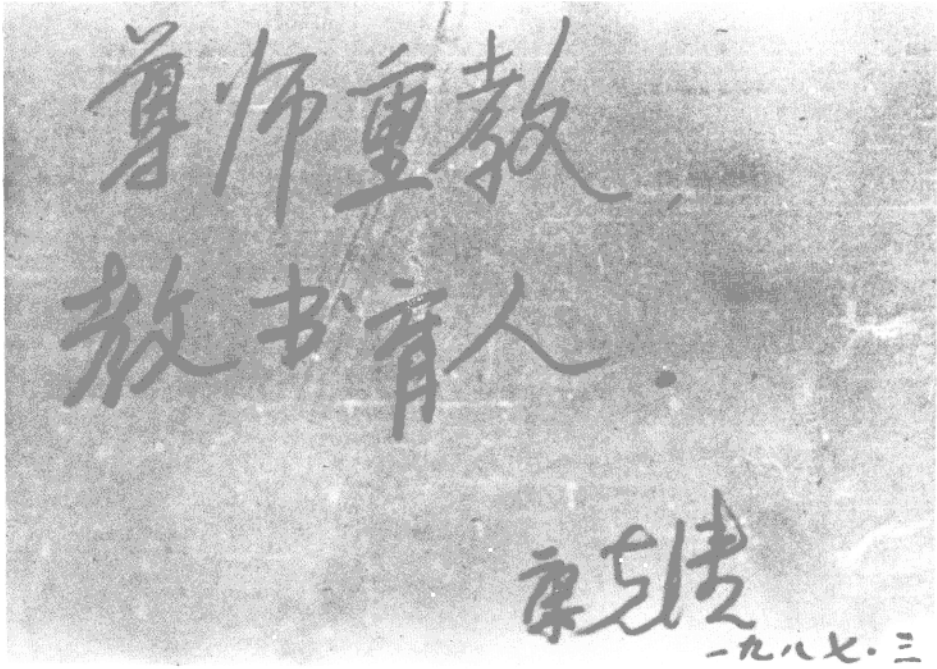 尊师重教，
教书育人.
康克清
一九八七.三